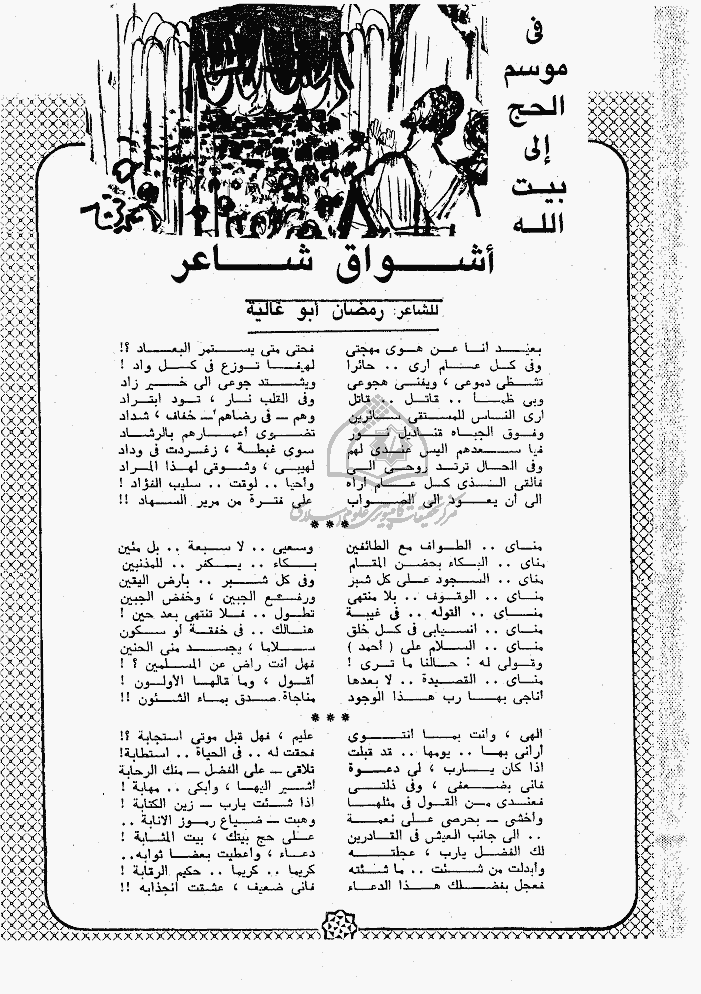 فى
موسم
الحج
إلى
بيت
الله
أشواق شاعر
للشاعر: رمضان أبو غالية
بعيد انا عن هوى مهجتى فحتى متى يستمر البعاد ؟!
وفى كل عام أرى .. حائرا لهيفا توزع فى كل واد !
تشظى دموعى ، ويفنى هجوعى ويشتد جوعى الى خير زاد
وبى ظمأ .. قاتل .. قاتل وفى القلب نار ، تود ابتراد
أرى الناس للمستقى سائرين وهم — فى رضاهم — خفاف ، شداد
وفوق الجباه قناديل نور تضوى أعمارهم بالرشاد
فيا سعدهم اليس عندى لهم سوى غبطة ، زغردت فى وداد
وفى الحال ترتد روحى الى لهيبى ، وشوقى لهذا المراد
فألقى الذى كل عام أراه وأحيا .. لوقت .. سليب الفؤاد !
الى أن يعود الى الصواب على فترة من مرير السهاد !!
* * *
مناى .. الطواف مع الطائفين وسعيى .. لا سبعة .. بل مئين
مناى .. البكاء بحضن المقام بكاء .. يكفر .. للمذنبين
مناى .. السجود على كل شبر وفى كل شبر .. بأرض اليقين
مناى .. الوقوف .. بلا منتهى ورفع الجبين ، وخفض الجبين
مناى .. التوله .. فى غيبة تطول .. فلا تنتهى بعد حين !
مناى .. انسيابى فى كل خلق هنالك .. فى خفقة أو سكون
مناى .. السلام على ( أحمد ) سلاما ، يجسد منى الحنين
وقولى له : حالنا ما ترى ! فهل أنت راض عن المسلمين ؟ !
مناى .. القصيدة .. لا بعدها أقول ، وما قالها الأولون !
أناجى بها رب هذا الوجود مناجاة صدق بماء الشئون !!
* * *
الهى ، وأنت بما انتوى عليم ، فهل قبل موتى استجابة ؟!
أرانى بها .. يومها .. قد قبلت فحقت له .. فى الحياة .. استطابة!
اذا كان يارب ، لى دعوة تلاقى — على الفضل — منك الرحابة
فانى بضعفى ، وفى ذلتى أشير اليها ، وأبكى .. مهابة !
فعندى من القول فى مثلها اذا شئت يارب — زين الكتابة !
وأخشى — بحرصى على نعمة وهبت — ضياع رموز الانابة ..
.. الى جانب العيش فى القادرين على حج بيتك ، بيت المثابة !
لك الفضل يارب ، عجلته دعاء ، وأعطيت بعضا ثوابه..
وأبدلت من شئت .. ما شئته كريما .. كريما .. حكيم الرقابة !
فعجل بفضلك هذا الدعاء فانى ضعيف ، عشقت انجذابه !!